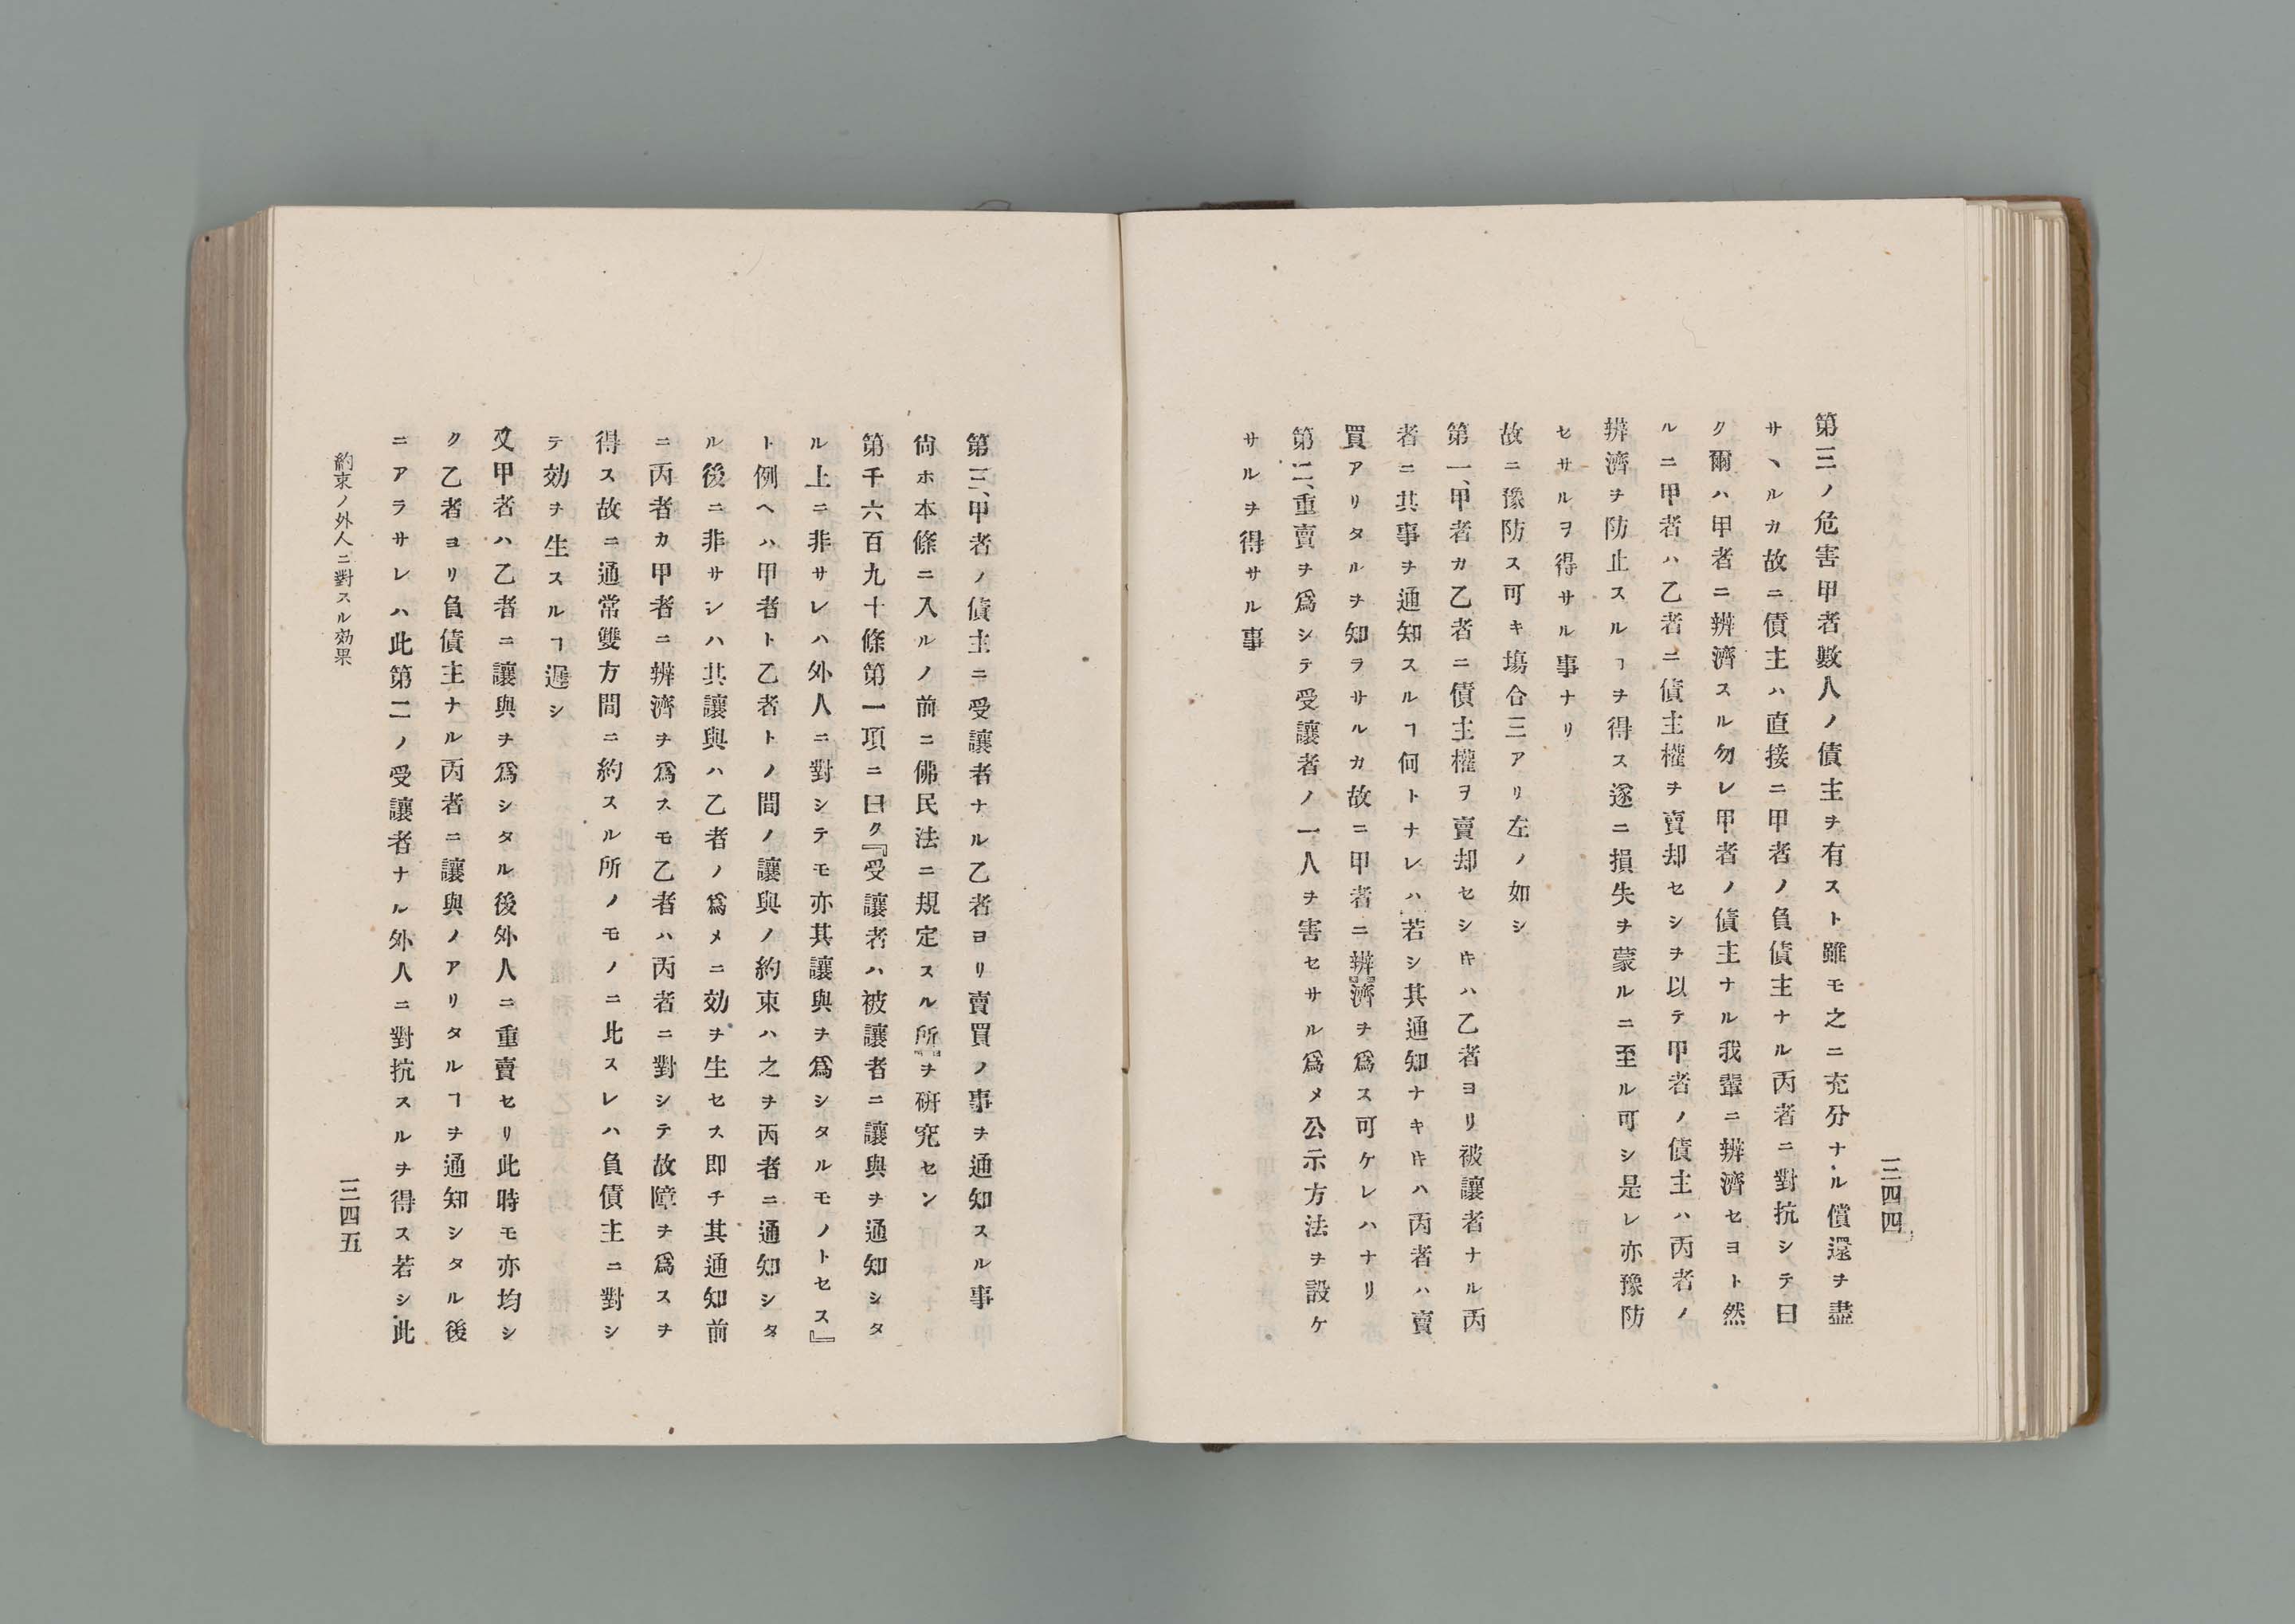 三四四
第三ノ危害甲者數人ノ債主ヲ有スト雖モ之ニ充分ナル償還ヲ盡
サヽルカ故ニ債主ハ直接ニ甲者ノ負債主ナル丙者ニ對抗シテ曰
ク爾ハ甲者ニ辨濟スル勿レ甲者ノ債主ナル我輩ニ辨濟セヨト然
ルニ甲者ハ乙者ニ債主權ヲ賣却セシヲ以テ甲者ノ債主ハ丙者ノ
辨濟ヲ防止スルヿヲ得ス遂ニ損失ヲ蒙ルニ至ル可シ是レ亦豫防
セサルヲ得サル事ナリ
故ニ豫防ス可キ塲合三アリ左ノ如シ
第一、甲者カ乙者ニ債主權ヲ賣却セシキハ乙者ヨリ被讓者ナル丙
者ニ其事ヲ通知スルヿ何トナレハ若シ其通知ナキキハ丙者ハ賣
買アリタルヲ知ラサルカ故ニ甲者ニ辨濟ヲ爲ス可ケレハナリ
第二、重賣ヲ爲シテ受讓者ノ一人ヲ害セサル爲メ公示方法ヲ設ケ
サルヲ得サル事
第三、甲者ノ債主ニ受讓者ナル乙者ヨリ賣買ノ事ヲ通知スル事
尙ホ本條ニ入ルノ前ニ佛民法ニ規定スル所ヲ硏究セン
第千六百九十條第一項ニ曰ク『受讓者ハ被讓者ニ讓與ヲ通知シタ
ル上ニ非サレハ外人ニ對シテモ亦其讓與ヲ爲シタルモノトセス』
ト例ヘハ甲者ト乙者トノ間ノ讓與ノ約束ハ之ヲ丙者ニ通知シタ
ル後ニ非サシハ其讓與ハ乙者ノ爲メニ効ヲ生セス即チ其通知前
ニ丙者カ甲者ニ辨濟ヲ爲スモ乙者ハ丙者ニ對シテ故障ヲ爲スヲ
得ス故ニ通常雙方間ニ約スル所ノモノニ比スレハ負債主ニ對シ
テ効ヲ生スルヿ遲シ
又甲者ハ乙者ニ讓與ヲ爲シタル後外人ニ重賣セリ此時モ亦均シ
ク乙者ヨリ負債主ナル丙者ニ讓與ノアリタルヿヲ通知シタル後
ニアラサレハ此第二ノ受讓者ナル外人ニ對抗スルヲ得ス若シ此
約束ノ外人ニ對スル効果
三四五